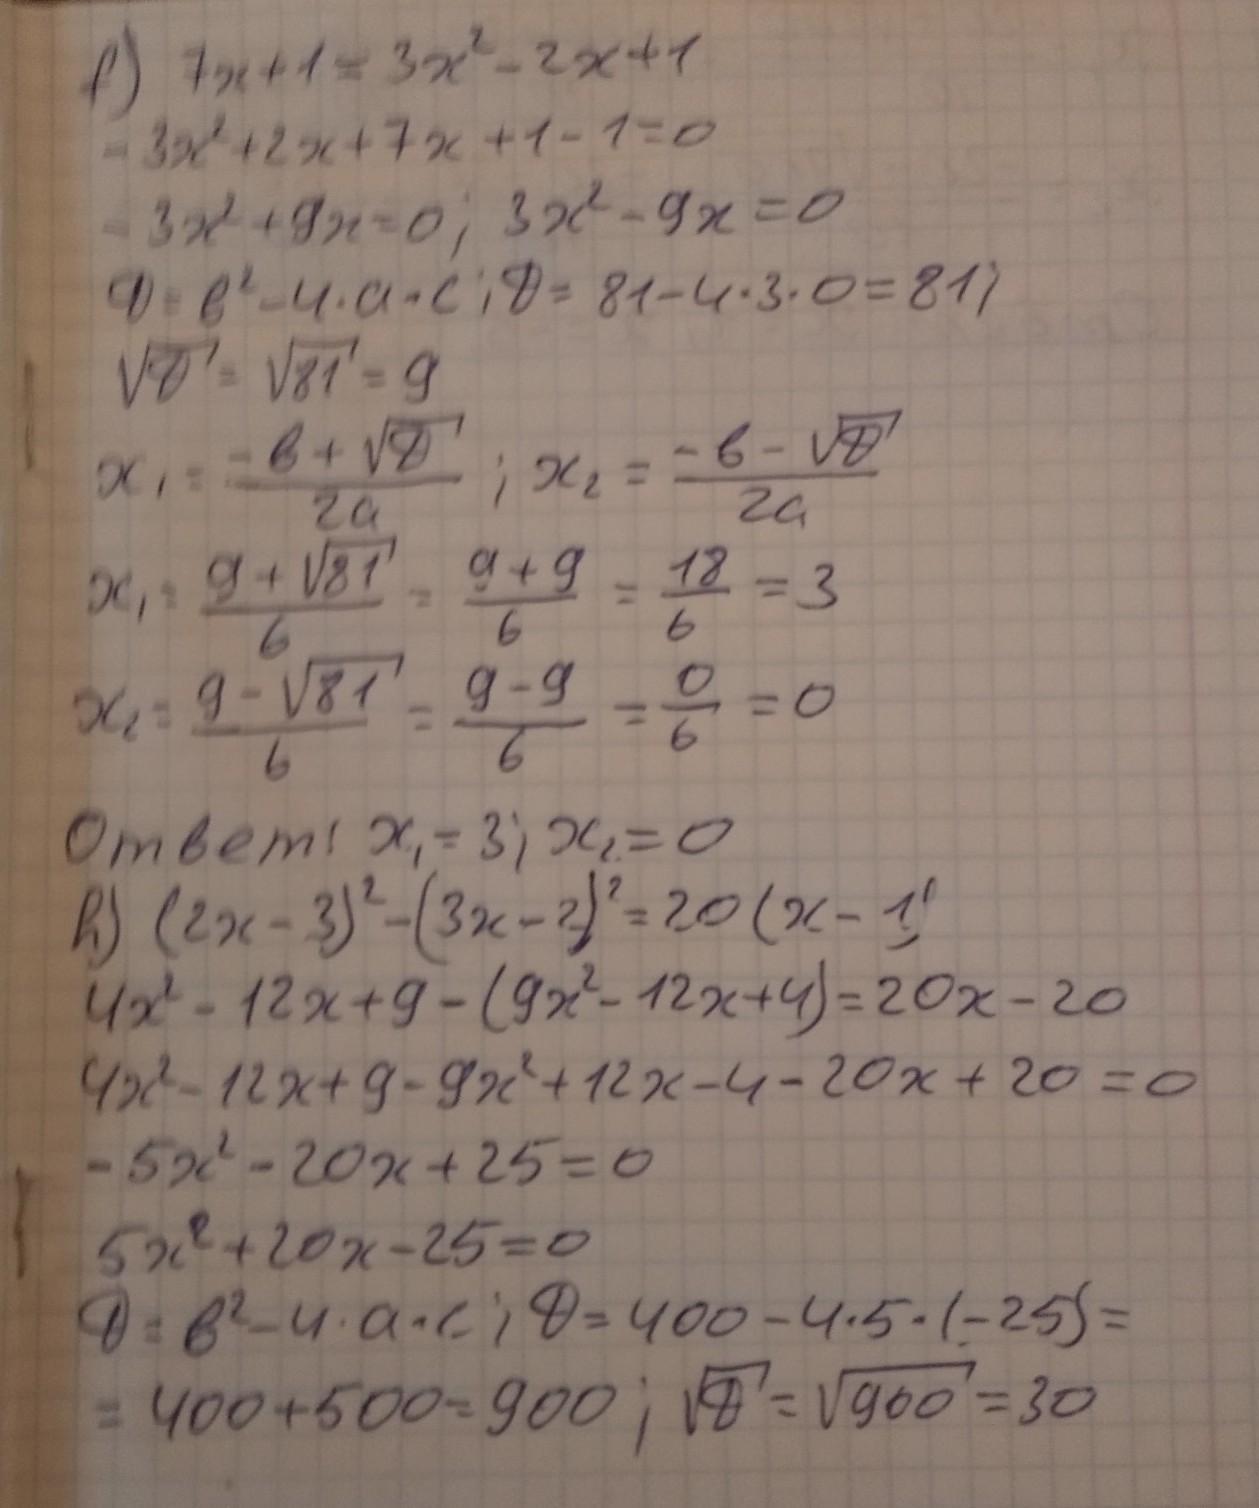 f) 7x+1=3x²-2x+1
-3x²+2x+7x+1-1=0
-3x²+9x=0; 3x²-9x=0
D=в²-4·a·c; D=81-4·3·0=81;
√D=√81=9
x₁=(-в+√D)/2a; x₂=(-в-√D)/2a
x₁=(9+√81)/6=(9+9)/6=18/6=3
x₂=(9-√81)/6=(9-9)/6=0/6=0
Ответ: x₁=3; x₂=0
h) (2x-3)²-(3x-2)²=20(x-1)
4x²-12x+9-(9x²-12x+4)=20x-20
4x²-12x+9-9x²+12x-4-20x+20=0
-5x²-20x+25=0
5x²+20x-25=0
D=в²-4·a·c; D=400-4·5·(-25)=
=400+500=900; √D=√900=30